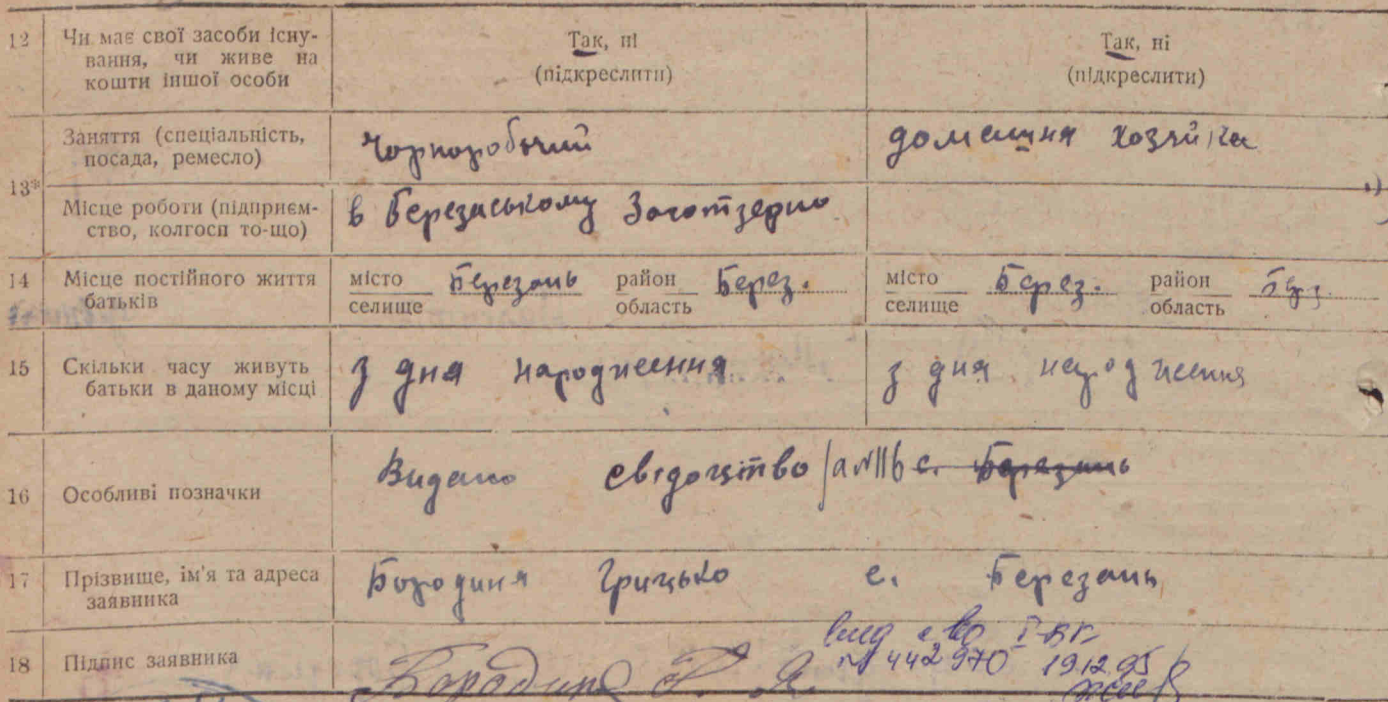 12 Чи має свої засоби існу-
вання, чи живе на
кошти іншої особи
Так, ні
(підкреслити)
Так, ні
(підкреслити)
13*
Заняття (спеціальність,
посада, ремесло)
Чорноробочий
домашня хозяйка
Місце роботи (підприєм-
ство, колгосп то-що)
в Березаському Заготзерно
14 Місце постійного життя
батьків
місто
селище
Березань
район
область
Берез.
місто
селище
Берез.
район
область
Берез.
15 Скільки часу живуть
батьки в даному місці
з дня народження
з дня народження
16 Особливі позначки
Видано свідоцтво с. Березань
17 Прізвище, ім'я та адреса
заявника
Бородиня Грицько с. Березань
18 Підпис заявника
№ 442970 19.12.95